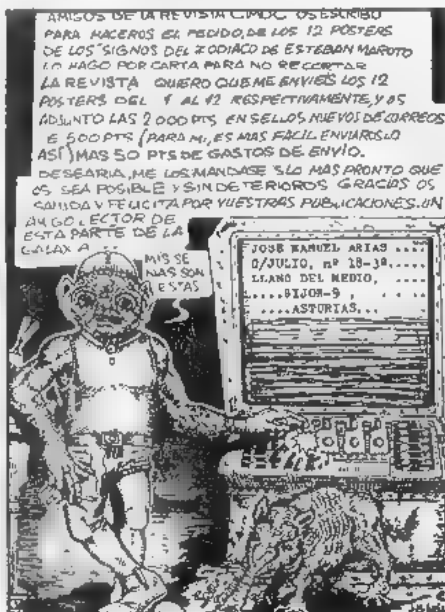 AMIGOS DE LA REVISTA CIMOC OS ESCRIBO
PARA HACEROS EL PEDIDO, DE LOS 12 POSTERS
DE LOS SIGNOS DEL ZODIACO DE ESTEBAN MAROTO
LO HAGO POR CARTA PARA NO RECORTAR
LA REVISTA QUIERO QUE ME ENVIEIS LOS 12
POSTERS DEL 1 AL 12 RESPECTIVAMENTE, Y OS
ADJUNTO LAS 2000 PTS EN SELLOS NUEVOS DE CORREOS
E 500 PTS (PARA MI, ES MAS FACIL ENVIAROSLO
ASI) MAS 50 PTS DE GASTOS DE ENVIO.
DESEARIA, ME LOS MANDASE S LO MAS PRONTO QUE
OS SEA POSIBLE Y SIN DETERIOROS GRACIAS OS
SALUDA Y FELICITA POR VUESTRAS PUBLICACIONES. UN
AMIGO LECTOR DE
ESTA PARTE DE LA
GALAX A
MIS SE
ÑAS SON
ESTAS
JOSE MANUEL ARIAS ....
C/JULIO, nº 18-3º,.....
LLANO DEL MEDIO,
.....GIJON-9 ,
.....ASTURIAS...